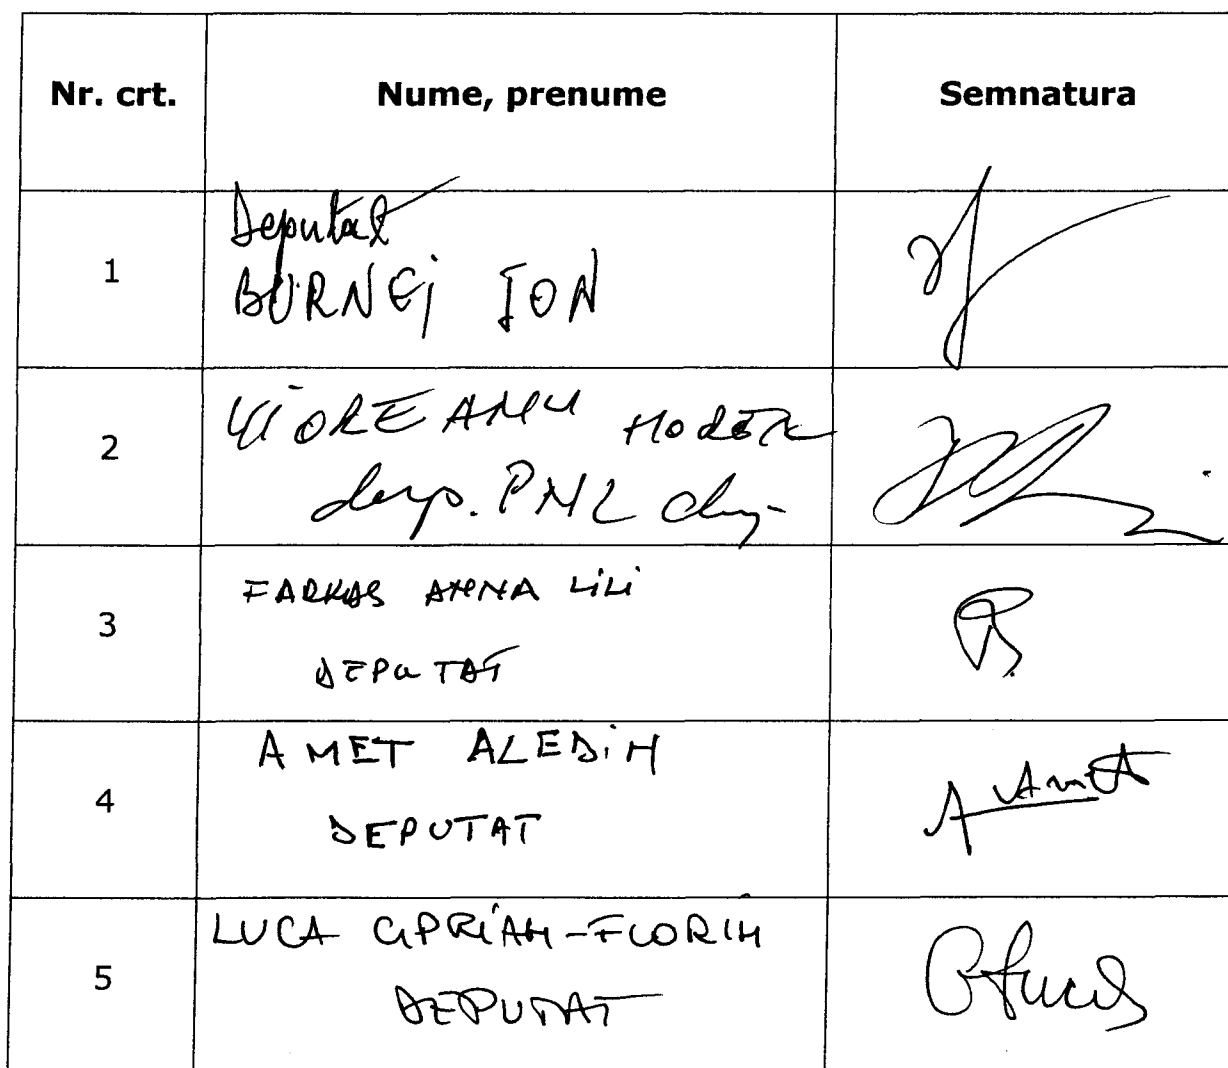 Nr. crt. Nume, prenume Semnatura
1 Deputat
BURNEI ION
2 VIOREANU
dep. PNL
3 FARKAS ANNA LiLi
DEPUTAT
4 AMET ALEDiN
DEPUTAT
A Amet
5 LUCA CiPRiAN-FLORIN
DEPUTAT